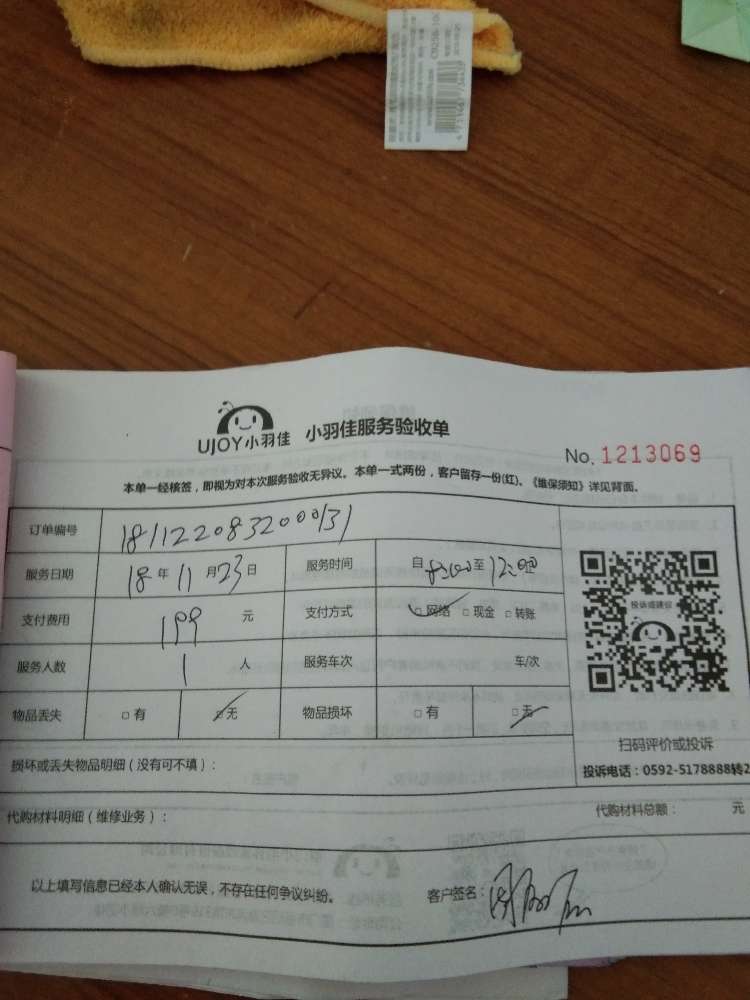 C0256-100
UJOY小羽佳 小羽佳服务验收单
No. 1213069
本单一经核签，即视为对本次服务验收无异议。本单一式两份，客户留存一份(红)、《维保须知》详见背面。
订单编号 18112208320000131
服务日期 18年11月23日 服务时间 自8:00至12:00
支付费用 199元 支付方式 □网络 □现金 □转账
服务人数 1人 服务车次 车/次
物品丢失 □有 □无 物品损坏 □有 □无
投诉或建议
扫码评价或投诉
投诉电话：0592-5178888转2
损坏或丢失物品明细（没有可不填）：
代购材料明细（维修业务）： 代购材料总额： 元
以上填写信息已经本人确认无误，不存在任何争议纠纷。 客户签名：